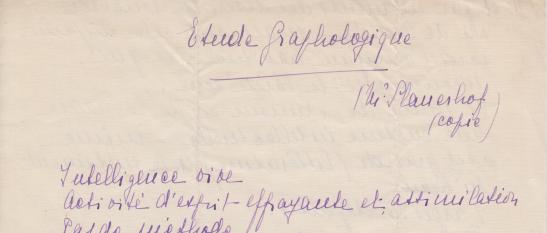 Etude Graphologique
(copie)
Intelligence vive
Activité d'esprit effrayante et assimilation
Pas de méthode